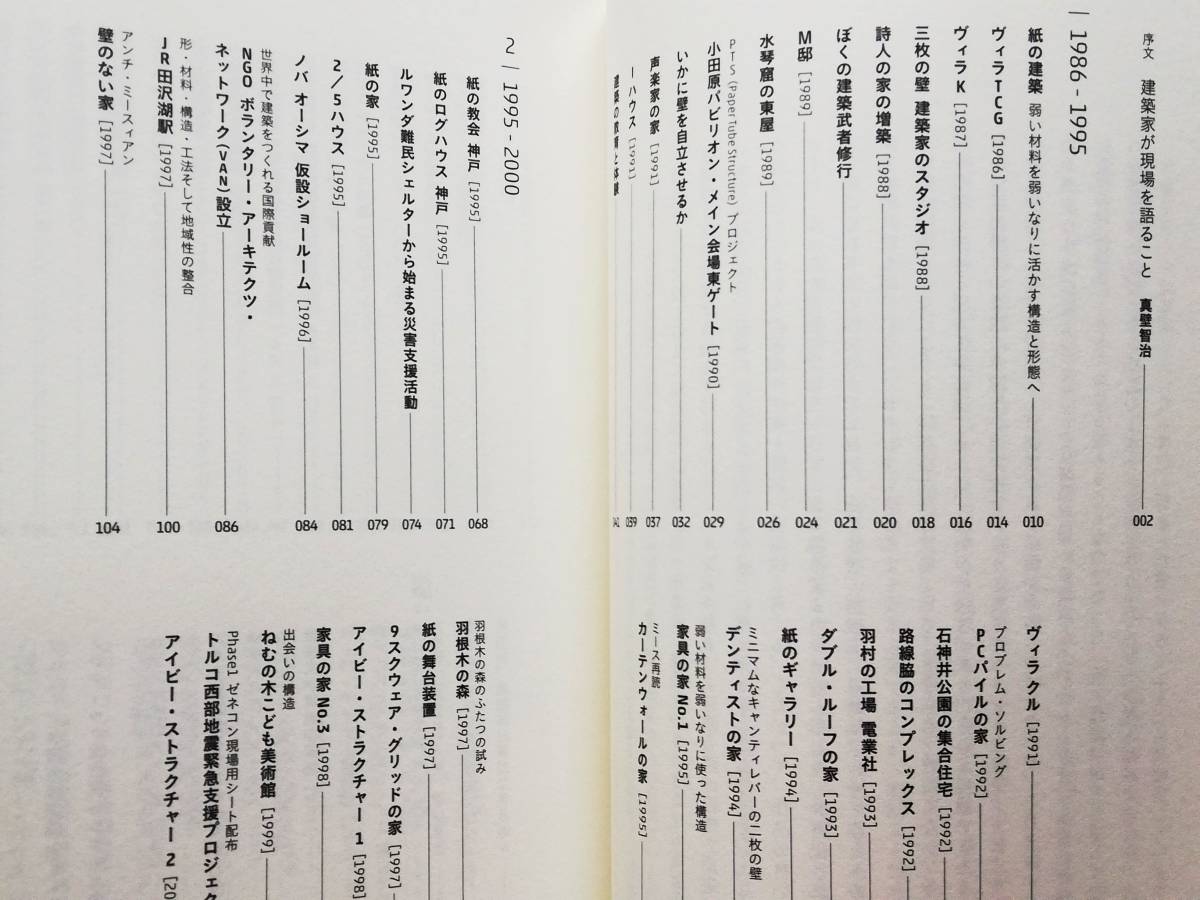 序文 建築家が現場を語ること 真壁智治 002
1986 - 1995
紙の建築 弱い材料を弱いなりに活かす構造と形態へ 010
ヴィラTCG [1986] 014
ヴィラK [1987] 016
三枚の壁 建築家のスタジオ [1988] 018
詩人の家の増築 [1988] 020
ぼくの建築武者修行 021
M邸 [1989] 024
水琴窟の東屋 [1989] 026
PTS (Paper Tube Structure) プロジェクト
小田原パビリオン・メイン会場東ゲート [1990] 029
いかに壁を自立させるか 032
声楽家の家 [1991] 037
Iハウス [1991] 039
041
ヴィラ クル [1991]
プロブレム・ソルビング
PCパイルの家 [1992]
石神井公園の集合住宅 [1992]
路線脇のコンプレックス [1992]
羽村の工場 電業社 [1993]
ダブル・ルーフの家 [1993]
紙のギャラリー [1994]
ミニマムなキャンティレバーの二枚の壁
デンティストの家 [1994]
弱い材料を弱いなりに使った構造
家具の家 No.1 [1995]
ミース再読
カーテンウォールの家 [1995]
2 1995 - 2000
紙の教会 神戸 [1995] 068
紙のログハウス 神戸 [1995] 071
ルワンダ難民シェルターから始まる災害支援活動 074
紙の家 [1995] 079
2/5ハウス [1995] 081
ノバ オーシマ 仮設ショールーム [1996] 084
世界中で建築をつくれる国際貢献
NGO ボランタリー・アーキテクツ・
ネットワーク(VAN)設立 086
形・材料・構造・工法そして地域性の整合
JR田沢湖駅 [1997] 100
アンチ・ミースィアン
壁のない家 [1997] 104
羽根木の森のふたつの試み
羽根木の森 [1997]
紙の舞台装置 [1997]
9スクウェア・グリッドの家 [1997]
アイビー・ストラクチャー 1 [1998]
家具の家 No.3 [1998]
出会いの構造
ねむの木こども美術館 [1999]
Phase1 ゼネコン現場用シート配布
トルコ西部地震緊急支援プロジェク
アイビー・ストラクチャー 2 [20